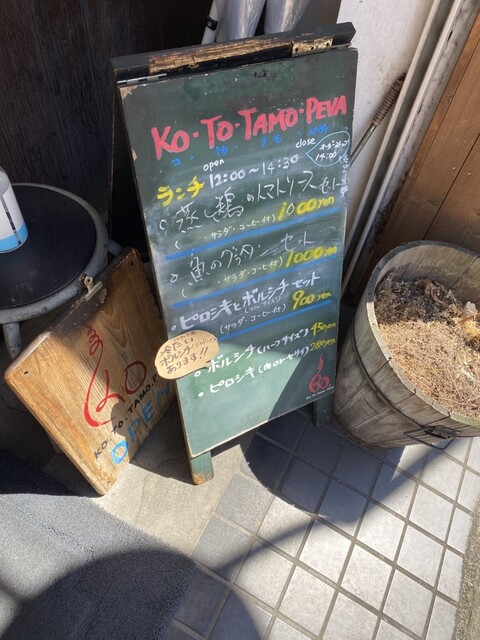 KO・TO・TAMO・PEVA
open
close
ランチ 12:00～14:30
14:00
蒸し鶏のトマトソースセット
(サラダ・コーヒー付) 1000yen
魚のグラタンセット
(サラダ・コーヒー付) 1000yen
ピロシキとボルシチセット
(サラダ・コーヒー付) 900yen
冷たい
ボルシチ
あります!!
ボルシチ(ハーフサイズ) 450yen
ピロシキ(肉orヤサイ) 280yen
KO・TO・TAMO
OPEN